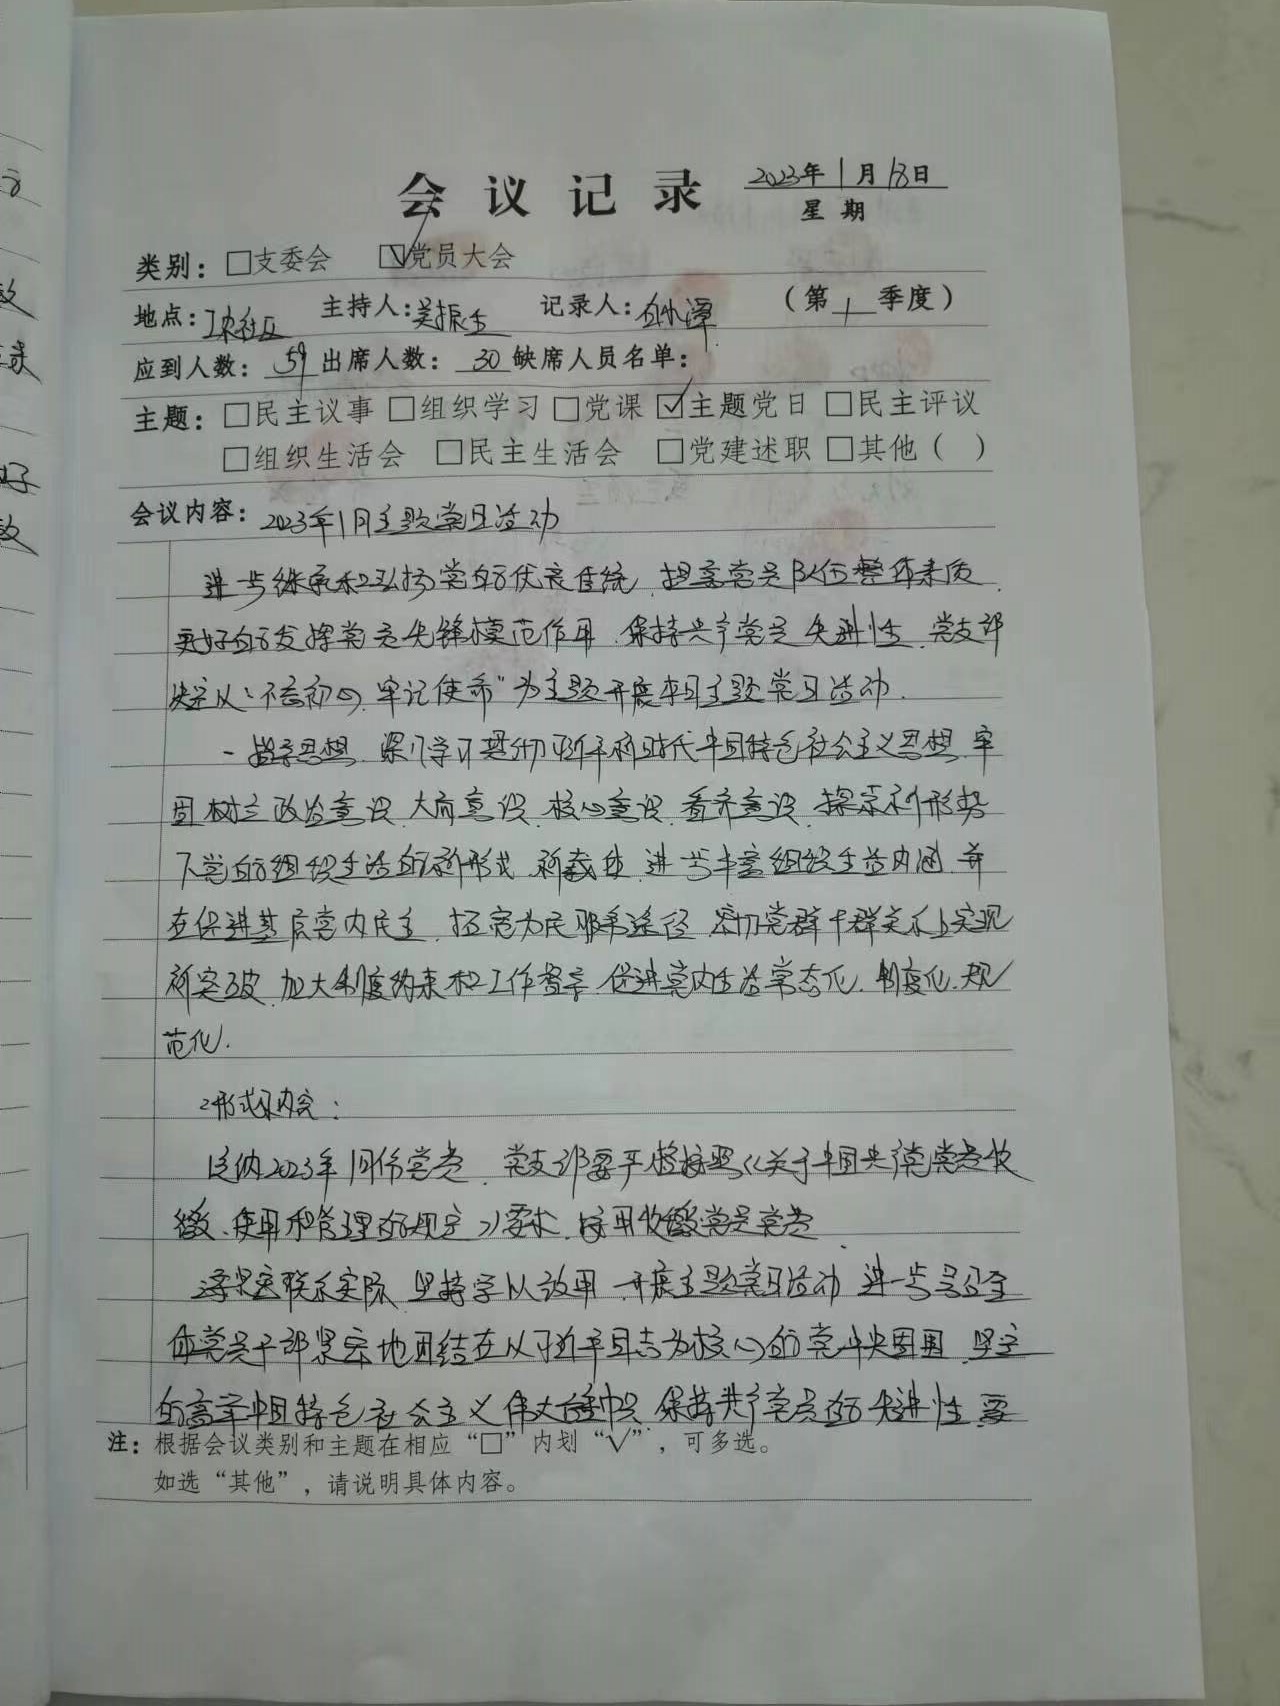 会议记录
2023年1月18日
星期
类别：□支委会 ☑党员大会
地点：社区 主持人：吴振生 记录人： （第1季度）
应到人数：59 出席人数：30 缺席人员名单：
主题：□民主议事 □组织学习 □党课 ☑主题党日 □民主评议
□组织生活会 □民主生活会 □党建述职 □其他（ ）
会议内容：2023年1月主题党日活动
进一步继承和弘扬党的优良传统，提高党员队伍整体素质，
更好的发挥党员先锋模范作用，保持共产党员先进性，党支部
决定以“不忘初心、牢记使命”为主题开展本月主题党日活动．
一 指导思想．深入学习贯彻习近平新时代中国特色社会主义思想，牢
固树立政治意识、大局意识、核心意识、看齐意识，探索新形势
下党的组织生活的新形式、新载体，进一步丰富组织生活内涵，并
在促进基层党内民主，拓宽为民服务途径，密切党群干群关系上实现
新突破，加大制度约束和工作督导，促进党内生活常态化、制度化、规
范化．
2形式及内容：
1交纳2023年1月份党费，党支部要严格按照《关于中国共产党党费收
缴、使用和管理的规定》要求，按月收缴党员党费
紧密联系实际，坚持学以致用，开展主题党日活动，进一步号召全
体党员干部紧密地团结在以习近平同志为核心的党中央周围，坚定
的高举中国特色社会主义伟大旗帜，保持共产党员的先进性，要
注：根据会议类别和主题在相应“□”内划“√”，可多选。
如选“其他”，请说明具体内容。